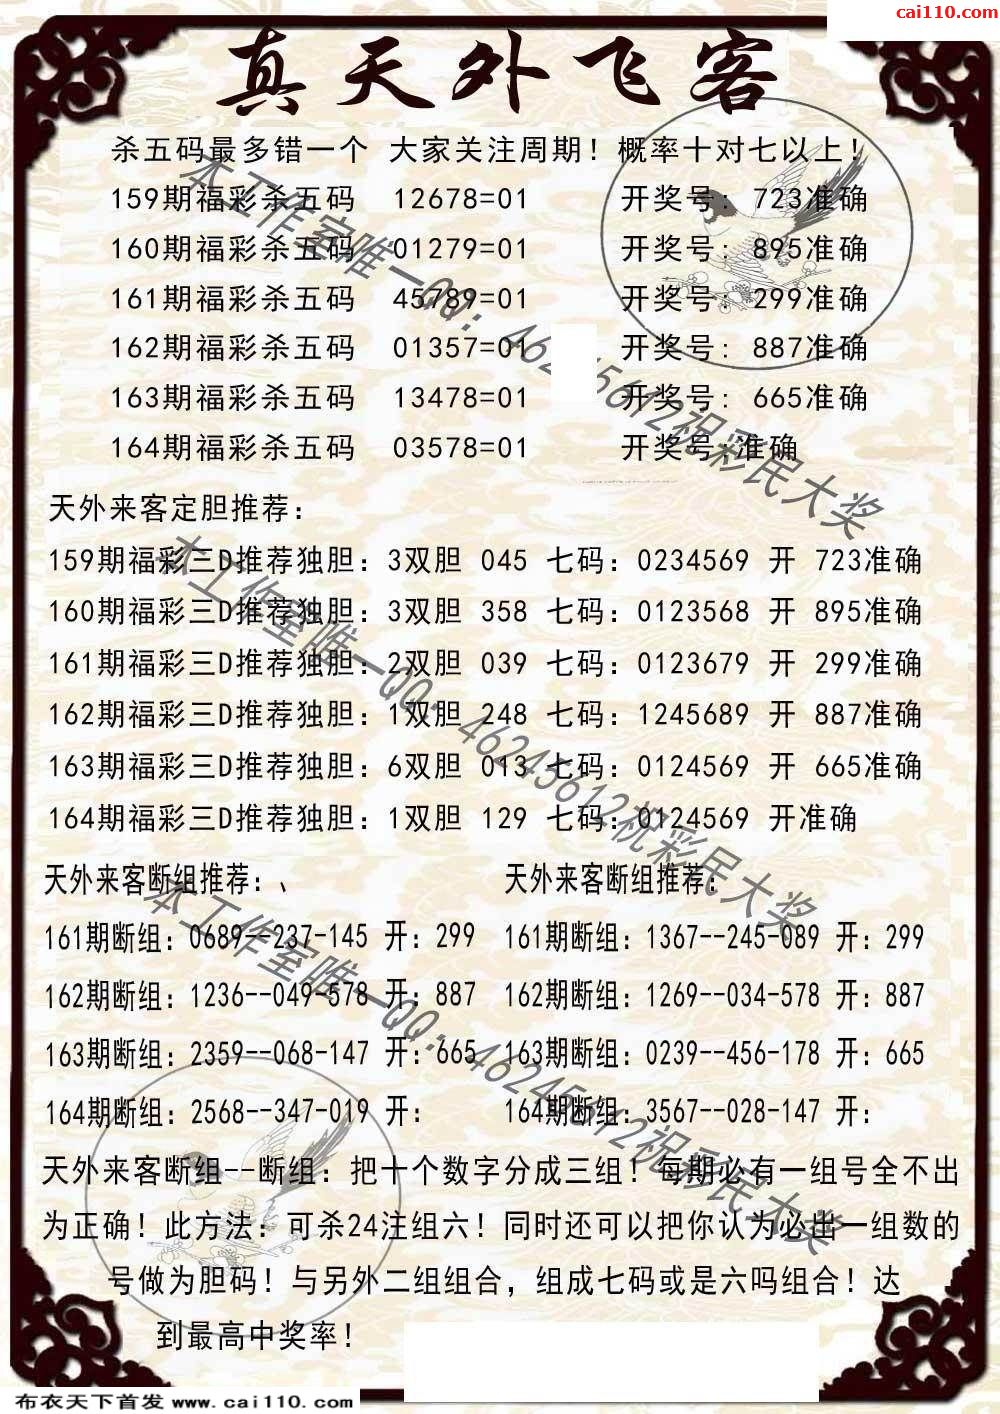 cai110.com
真天外飞客
杀五码最多错一个 大家关注周期！概率十对七以上！
159期福彩杀五码 12678=01 开奖号：723准确
160期福彩杀五码 01279=01 开奖号：895准确
161期福彩杀五码 45789=01 开奖号：299准确
162期福彩杀五码 01357=01 开奖号：887准确
163期福彩杀五码 13478=01 开奖号：665准确
164期福彩杀五码 03578=01 开奖号:准确
本工作室唯一QQ：46245612祝彩民大奖
天外来客定胆推荐：
159期福彩三D推荐独胆：3双胆 045 七码：0234569 开 723准确
160期福彩三D推荐独胆：3双胆 358 七码：0123568 开 895准确
161期福彩三D推荐独胆：2双胆 039 七码：0123679 开 299准确
162期福彩三D推荐独胆：1双胆 248 七码：1245689 开 887准确
163期福彩三D推荐独胆：6双胆 013 七码：0124569 开 665准确
164期福彩三D推荐独胆：1双胆 129 七码：0124569 开准确
本工作室唯一QQ：46245612祝彩民大奖
天外来客断组推荐：、 天外来客断组推荐：
161期断组：0689--237-145 开：299 161期断组：1367--245-089 开：299
162期断组：1236--049-578 开：887 162期断组：1269--034-578 开：887
163期断组：2359--068-147 开：665 163期断组：0239--456-178 开：665
164期断组：2568--347-019 开： 164期断组：3567--028-147 开：
本工作室唯一QQ：46245612祝彩民大奖
天外来客断组--断组：把十个数字分成三组！每期必有一组号全不出
为正确！此方法：可杀24注组六！同时还可以把你认为必出一组数的
号做为胆码！与另外二组组合，组成七码或是六吗组合！达
到最高中奖率！
布衣天下首发 www.cai110.com